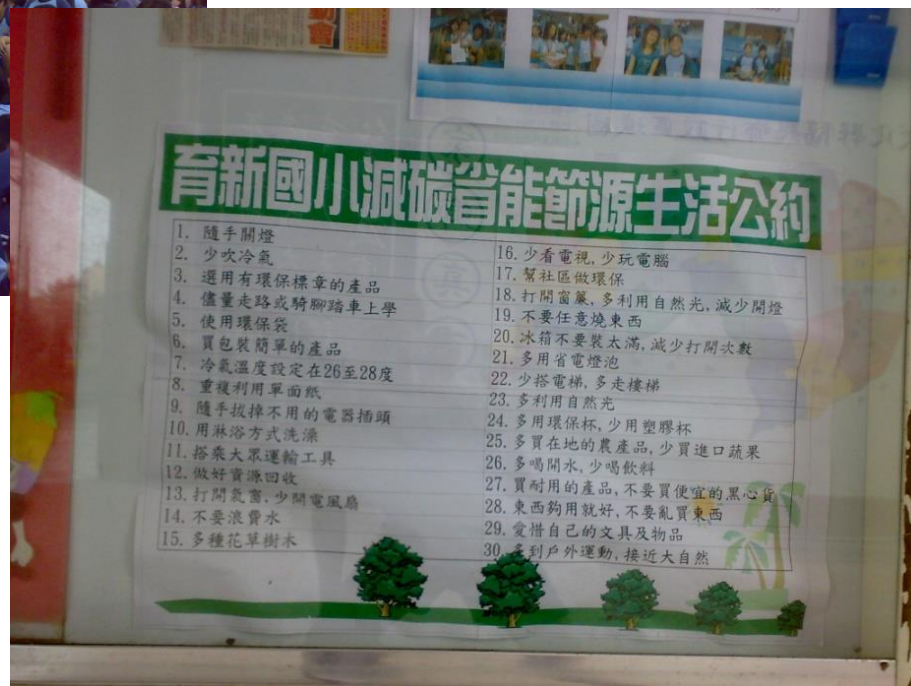 育新國小減碳省能節源生活公約
1. 隨手關燈
2. 少吹冷氣
3. 選用有環保標章的產品
4. 儘量走路或騎腳踏車上學
5. 使用環保袋
6. 買包裝簡單的產品
7. 冷氣溫度設定在26至28度
8. 重複利用單面紙
9. 隨手拔掉不用的電器插頭
10. 用淋浴方式洗澡
11. 搭乘大眾運輸工具
12. 做好資源回收
13. 打開氣窗,少開電風扇
14. 不要浪費水
15. 多種花草樹木
16. 少看電視,少玩電腦
17. 幫社區做環保
18. 打開窗簾,多利用自然光,減少開燈
19. 不要任意燒東西
20. 冰箱不要裝太滿,減少打開次數
21. 多用省電燈泡
22. 少搭電梯,多走樓梯
23. 多利用自然光
24. 多用環保杯,少用塑膠杯
25. 多買在地的農產品,少買進口蔬果
26. 多喝開水,少喝飲料
27. 買耐用的產品,不要買便宜的黑心貨
28. 東西夠用就好,不要亂買東西
29. 愛惜自己的文具及物品
30. 多到戶外運動,接近大自然